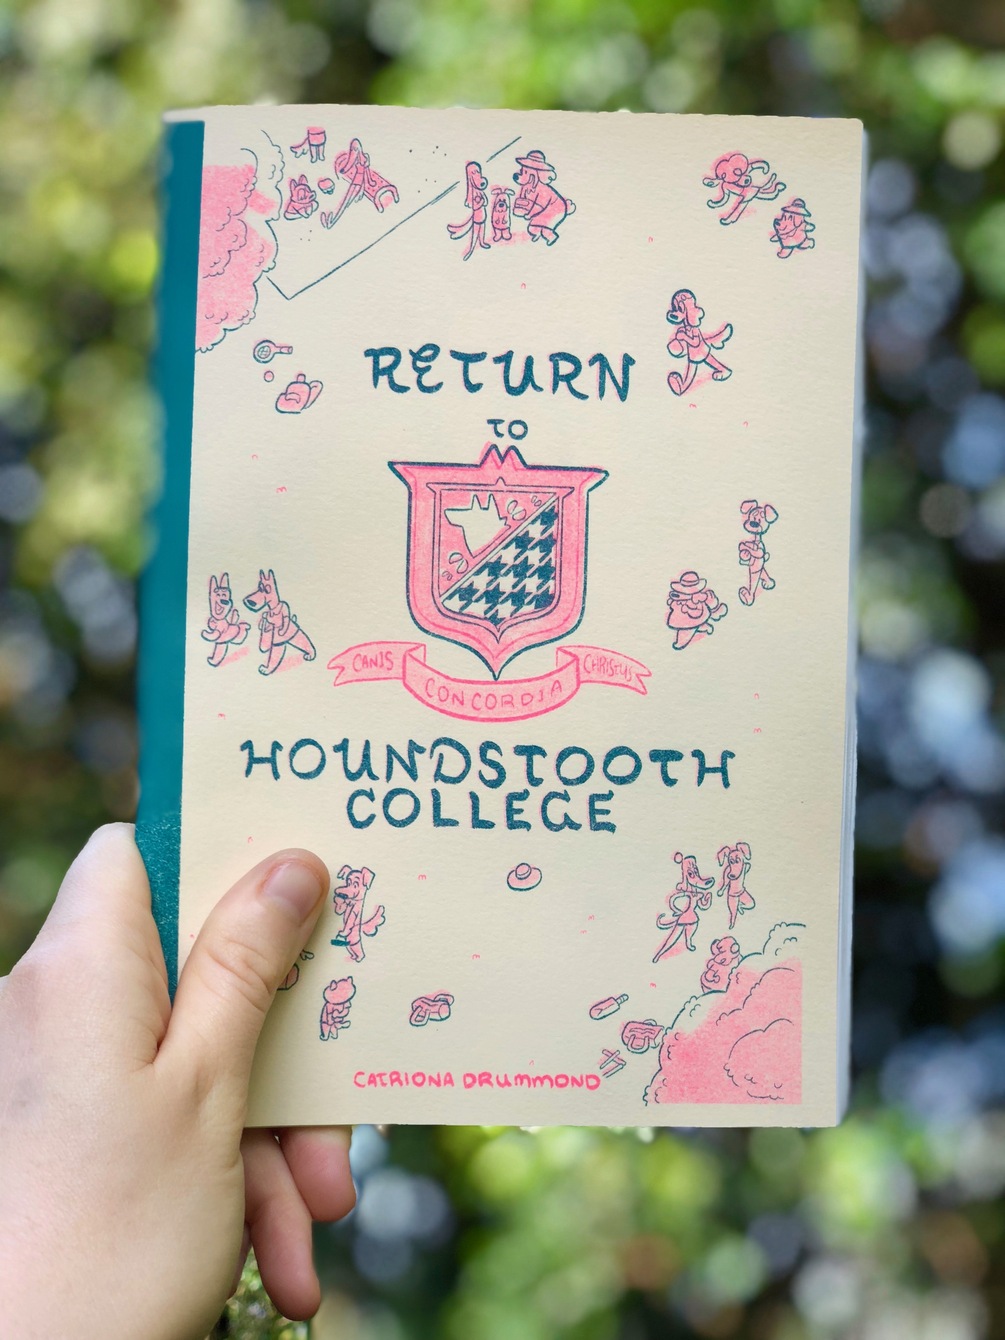 RETURN
TO
CANIS CONCORDIA CHRISTUS
HOUNDSTOOTH
COLLEGE
CATRIONA DRUMMOND